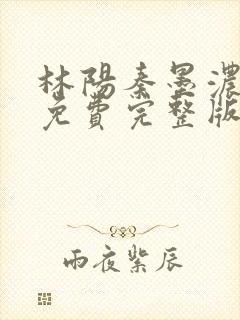 林陽秦墨濃
免費完整版
雨夜紫辰